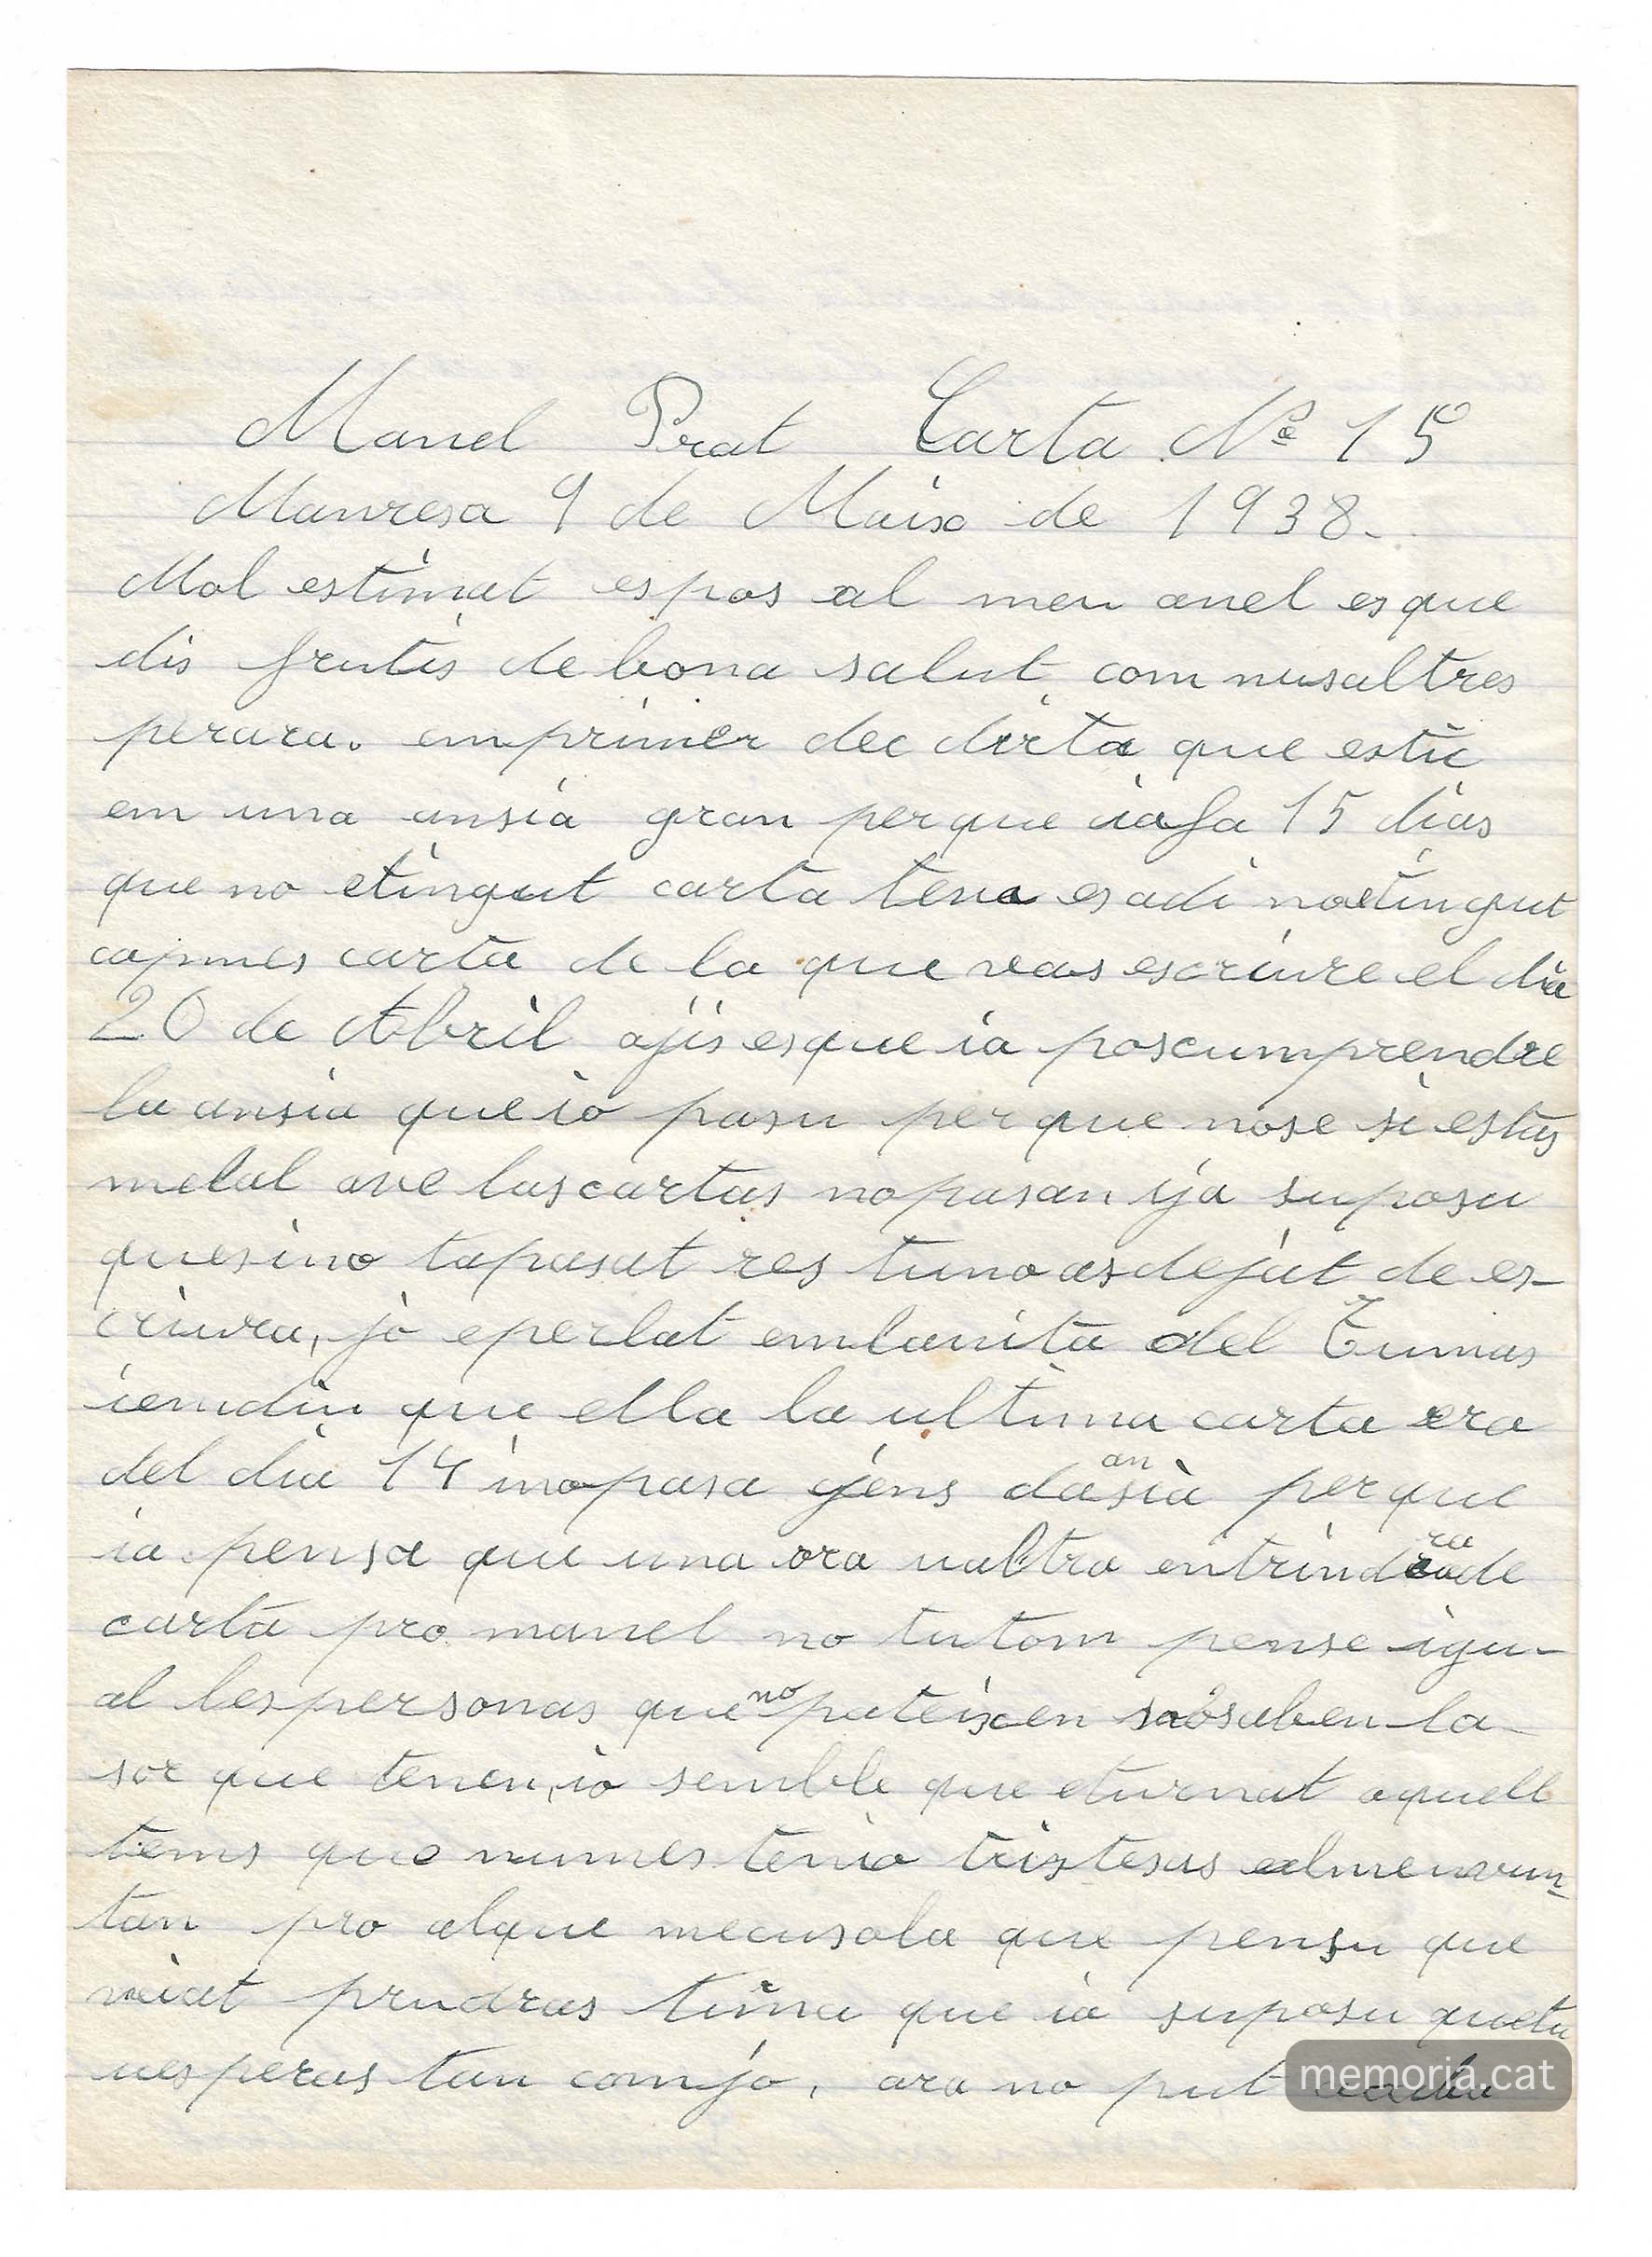 Manel Prat Carta Nº 15
Manresa 9 de Maix de 1938.
Mol estimat espos al meu anel esque
dis frutis de bona salut com nusaltres
perara. emprimer dec dirta que estic
em una ansia gran perque iafa 15 dias
que no etingut carta teva esadi noetingut
capmes carta de la que vas escriure el dia
20 de Abril ajis esque ia poscumprendre
la ansia queio pasu perque nose si estas
malal ove lascartas nopasan ija suposu
quesino tapasat res tunoasdejat de es-
criura, jo eperlat emlanita del Tumas
iemdiu que ella la ultima carta era
del dia 14 inopasa gens dansia perque
ia pensa que una ora ualtra entrindra de
carta pro manel no tutom pense igu-
al lespersonas que no pateixen nosaben la
sor que tenen, io semble que eturnat aquell
tems que numes tenia tristesas almenurun-
tan pro alque mecusola que pensu que
viat prudras tirna que ia suposu quetu
uesperas tan comjo, ara no put
memoria.cat